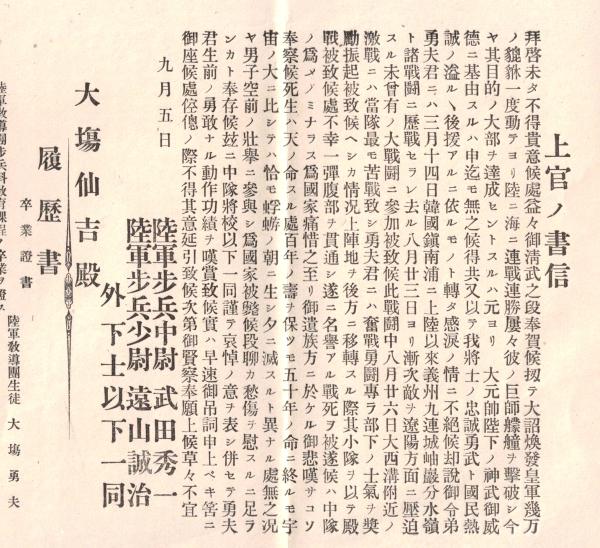 上官ノ書信
拜啓未タ不得貴意候處益々御淸武之段奉賀候扨テ大詔煥發皇軍幾万
ノ貔貅一度動テヨリ陸ニ海ニ連戰連勝屢々彼ノ巨師艨艟ヲ擊破シ今
ヤ其目的ノ大部ヲ達成セントスルハ元ヨリ 大元帥陛下ノ神武御威
德ニ基由スルハ申迄モ無之候得共又以テ我將士ノ忠誠勇武ト國民熱
誠ノ溢ルヽ後援アルニ依ルモノト轉タ感淚ノ情ニ不絕候却說御令弟
勇夫君ニハ三月十四日韓國鎭南浦ニ上陸以來義州九連城岫巖分水嶺
ト諸戰鬪ニ歷戰セラレ去ル八月廿三日ヨリ漸次敵ヲ遼陽方面ニ壓迫
スル未曾有ノ大戰鬪ニ參加被致候此戰鬪中八月廿六日大西溝附近ノ
激戰ニハ當隊最モ苦戰致シ勇夫君ニハ奮戰勇鬪專ラ部下ノ士氣ヲ奬
勵振起被致候ヘシカ情況上陣地ヲ後方ニ移轉スル際其小隊ヲ以テ殿
戰被致候處不幸一彈腹部ヲ貫通シ遂ニ名譽アル戰死ヲ被遂候ハ中隊
ノ爲メノミナラス爲國家痛惜之至リ御遺族方ニ於ケル御悲嘆サコソ
奉察候死生ハ天ノ命スル處百年ノ壽ヲ保ツモ五十年ノ命ニ終ルモ宇
宙ノ大ニ比シテハ恰モ蜉蝣ノ朝ニ生シ夕ニ滅スルト異ナル處無之况
ヤ男子空前ノ壯擧ニ參與シ爲國家被斃候段聊カ愁傷ヲ慰スルニ足ラ
ンカト奉存候玆ニ中隊將校以下一同謹テ哀悼ノ意ヲ表シ併セテ勇夫
君生前ノ勇敢ナル動作功績ヲ嘆賞致候實ハ早速御吊詞申上ベキ筈ニ
御座候處倥傯ノ際不得其意延引致候次第御賢察奉願上候草々不宜
九月五日
陸軍步兵中尉 武田秀一
陸軍步兵少尉 遠山誠治
外下士以下一同
大塲仙吉殿
履歷書
卒業證書
陸軍敎導團生徒 大塲勇夫
陸軍敎導團步兵科敎育課程ノ卒業ヲ證ス